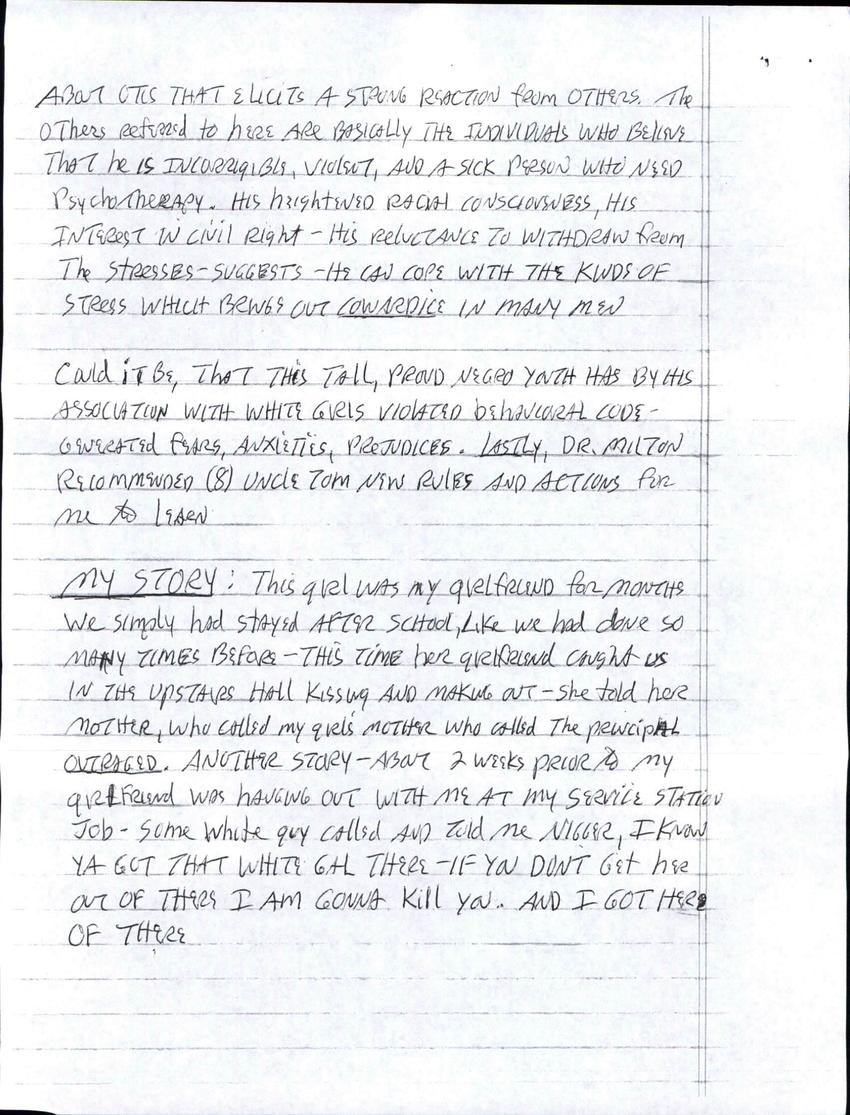 ABOUT OTIS THAT ELICITS A STRONG REACTION from OTHERS. The
OThers referred to here ARE BASICALLY THE INDIVIDUALS WHO BELIEVE
That he IS INCORRIGIBLE, VIOLENT, AND A SICK PERSON WHO NEED
PsychoTherapy. HIS heightened RACIAL CONSCIOUSNESS, HIS
INTEREST IN Civil Right - His reluctance TO WITHDRAW from
The STRESSES - SUGGESTS - HE CAN COPE WITH THE KINDS OF
STRESS WHICH BRINGS OUT COWARDICE IN MANY MEN
Could iT BE, THAT THIS TALL, PROUD NEGRO YOUTH HAS BY HIS
ASSOCIATION WITH WHITE GIRLS VIOLATED behavioral CODE -
GENERATED fears, ANXIETIES, PREJUDICES. LASTLY, DR. MILTON
RECOMMENDED (8) UNCLE TOM NEW RULES AND ACTIONS for
me to LEARN
MY STORY: This girl WAS my girlfriend for MONTHS
We simply had STAYED AFTER SCHOOL, Like we had done so
MANY TIMES BEFORE - THIS TIME her girlfriend caught us
IN THE UPSTAIRS HAll Kissing AND MAKING OUT - She told her
MOTHER, who called my girls MOTHER who called The principAL
OUTRAGED. ANOTHER STORY - ABOUT 2 weeks prior to my
girlfriend WAS hanging OUT WITH ME AT my SERVICE STATION
Job - Some White guy called AND Told me NIGGER, I KNOW
YA GOT THAT WHITE GAL THERE - IF YOU DON'T Get her
OUT OF THERE I AM GONNA Kill you.. AND I GOT HERE
OF THERE